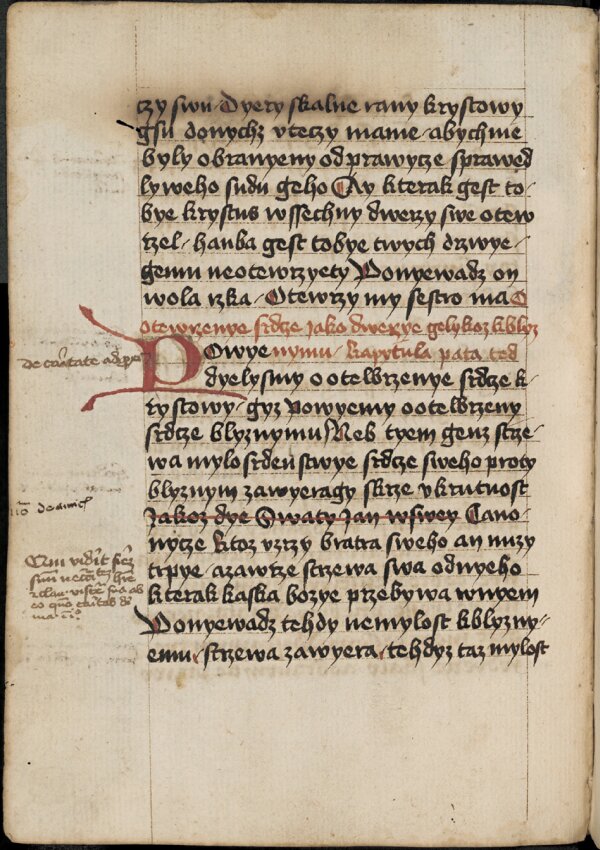 czy swu Dyery skalne rany krystowy
gsu donychz vteczy mame abychme
byly obranyeny od prawycze sprawed
lyweho sudu geho Ay kterak gest to
bye krystus wssechny dwerzy swe otew
rzel hanba gest tobye twych drzwye
gemu neotewrzyety Ponyewadz on
wola rzka Otewrzy my sestro ma
otewrzenye srdcze jako dwerzye gelykoz kblyz
Powyenymu kapytula pata ted
dyelysmy o otewrzenye srdcze k
rystowy gyz powyemy o otewrzeny
srdcze blyznymu Neb tyem genz strze
wa mylosrdenstwye srdcze sweho proty
blyznym zawyeragy skrze vkrutnost
Jakoz dye Swaty Jan wswey Cano
nycze Ktoz vzrzy bratra sweho an nuzy
trpye azawrze strzewa swa odnyeho
kterak laska bozye przebywa wnyem
Ponyewadz tehdy nemylost kblyzny
emu strzewa zawyera tehdyz taz mylost
de caritate ad
Qui viderit